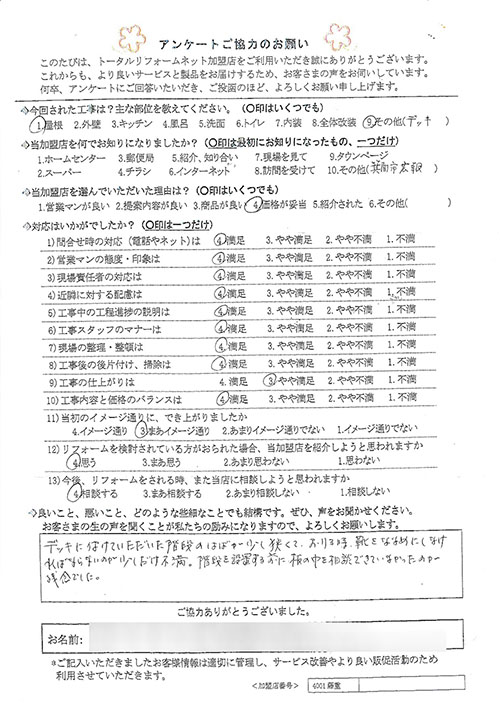 アンケートご協力のお願い
このたびは、トータルリフォームネット加盟店をご利用いただき誠にありがとうございます。
これからも、より良いサービスと製品をお届けするため、お客さまの声をお伺いしています。
何卒、アンケートにご回答いただいき、ご投函のほど、よろしくお願い申し上げます。
今回された工事は？主な部位を教えてください。（〇印はいくつでも）
1.屋根 2.外壁 3.キッチン 4.風呂 5.洗面 6.トイレ 7.内装 8.全体改装 9.その他(デッキ)
当加盟店を何でお知りになりましたか？（〇印は最初にお知りになったもの、一つだけ）
1.ホームセンター 3.郵便局 5.紹介、知り合い 7.現場を見て 9.タウンページ
2.スーパー 4.チラシ 6.インターネット 8.訪問を受けて 10.その他(箕面市広報)
当加盟店を選んでいただいた理由は？（〇印はいくつでも）
1.営業マンが良い 2.提案内容が良い 3.商品が良い 4.価格が妥当 5.紹介された 6.その他( )
対応はいかがでしたか？（〇印は一つだけ）
1）問合せ時の対応（電話やネット）は 4.満足 3.やや満足 2.やや不満 1.不満
2）営業マンの態度・印象は 4.満足 3.やや満足 2.やや不満 1.不満
3）現場責任者の対応は 4.満足 3.やや満足 2.やや不満 1.不満
4）近隣に対する配慮は 4.満足 3.やや満足 2.やや不満 1.不満
5）工事中の工程進捗の説明は 4.満足 3.やや満足 2.やや不満 1.不満
6）工事スタッフのマナーは 4.満足 3.やや満足 2.やや不満 1.不満
7）現場の整理・整頓は 4.満足 3.やや満足 2.やや不満 1.不満
8）工事後の後片付け、掃除は 4.満足 3.やや満足 2.やや不満 1.不満
9）工事の仕上がりは 4.満足 3.やや満足 2.やや不満 1.不満
10）工事内容と価格のバランスは 4.満足 3.やや満足 2.やや不満 1.不満
11）当初のイメージ通りに、でき上がりましたか
4.イメージ通り 3.まあイメージ通り 2.あまりイメージ通りでない 1.イメージ通りでない
12）リフォームを検討されている方がおられた場合、当加盟店を紹介しようと思われますか
4.思う 3.まあ思う 2.あまり思わない 1.思わない
13）今後、リフォームをされる時、また当店に相談しようと思われますか
4.相談する 3.まあ相談する 2.あまり相談しない 1.相談しない
良いこと、悪いこと、どのような些細なことでも結構です。ぜひ、声をお聞かせください。
お客さまの生の声を聞くことが私たちの励みになりますので、よろしくお願いします。
デッキに付けていただいた階段のはばが少し狭くて、おりる時、靴をななめにしなけ
ればならないのが少しだけ不満。階段を設置する前に板の巾を相談できていなかったのが
残念でした。
ご協力ありがとうございました。
お名前:
*ご記入いただきましたお客様情報は適切に管理し、サービス改善やより良い販促活動のため
利用させていただきます。
<加盟店番号> 4001 藤重